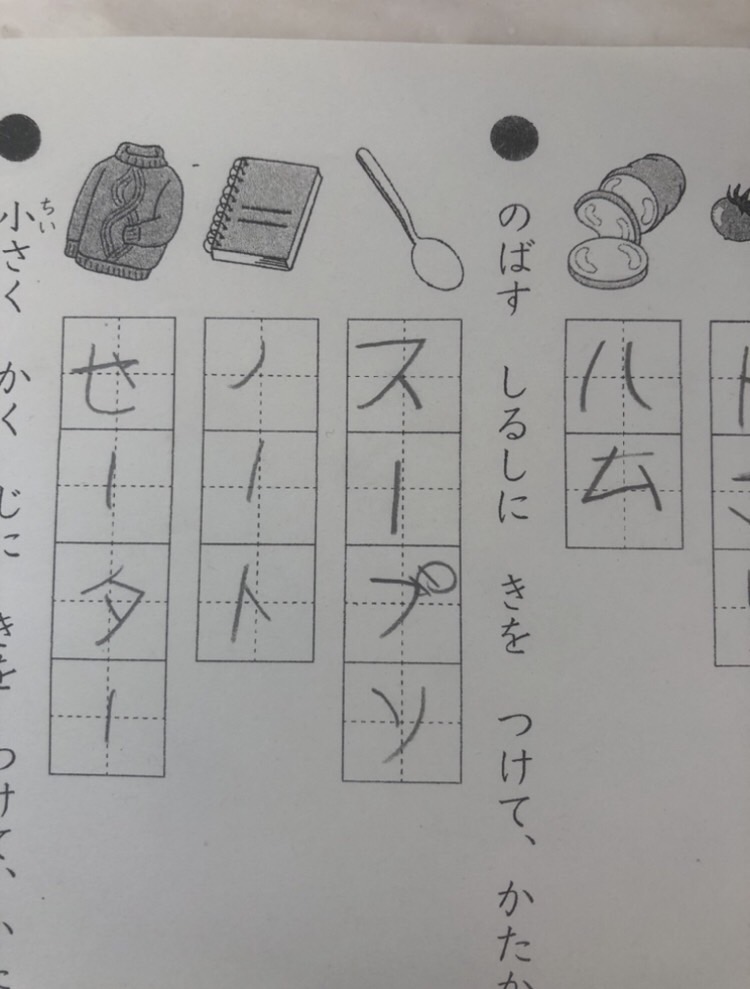 ハム
のばす しるしに きを つけて、 かたか
スープソ
ノート
せーター
ちい
小さく かく じに きを つけて、